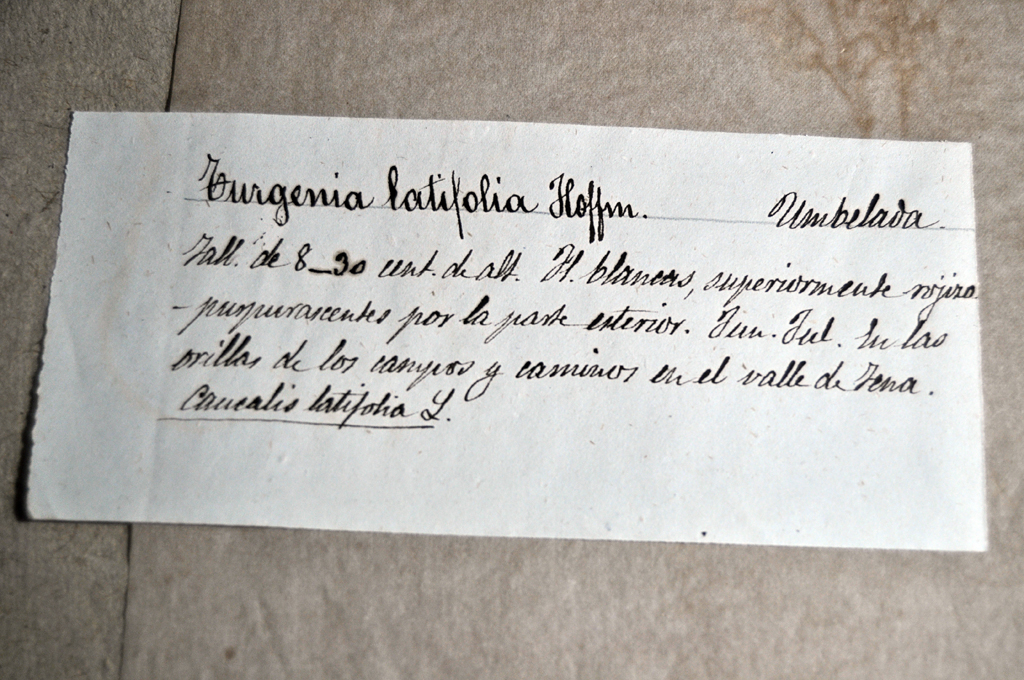 Turgenia latifolia Hoffm. Umbelada.
Tall. de 8_30 cent. de alt. Fl. blancas, superiormente rojizo
-purpurascentes por la parte exterior. Jun. Jul. En las
orillas de los campos y caminos en el valle de Tena.
Caucalis latifolia L.